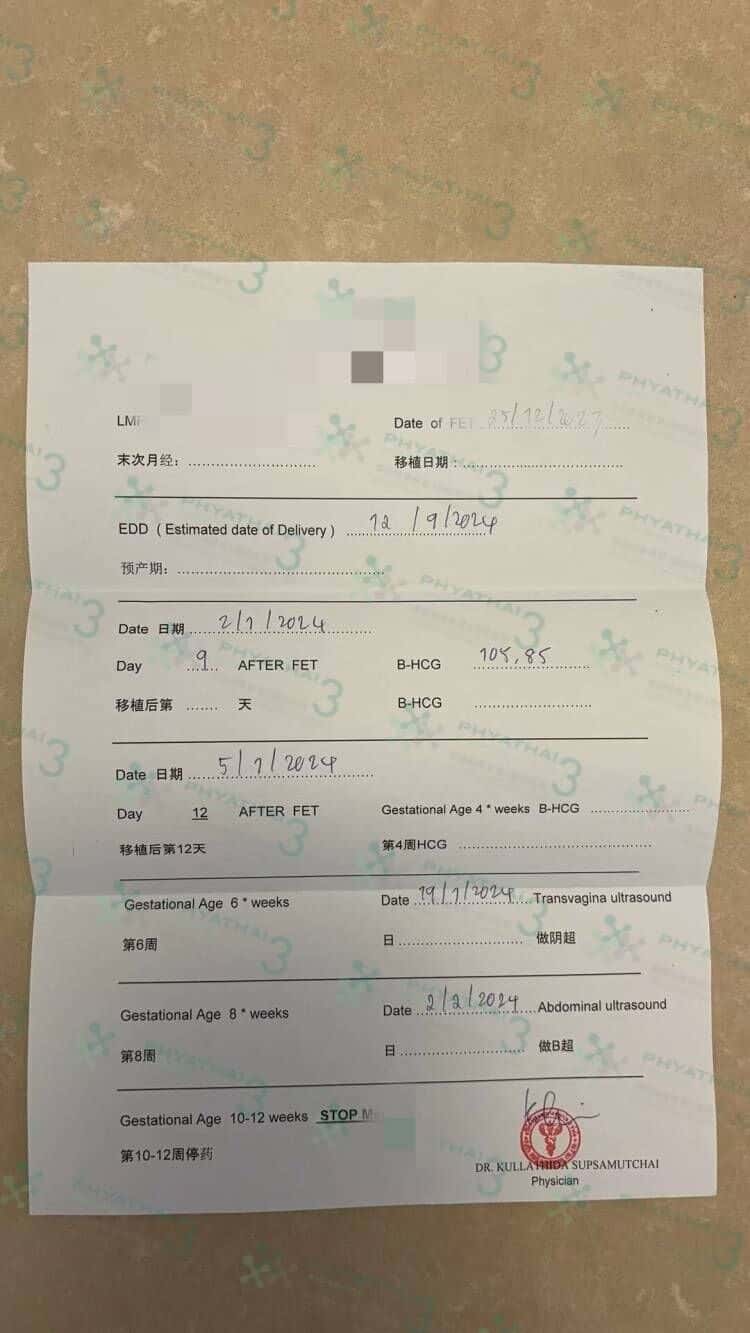 Date of FET 25/12/2023
末次月经：
移植日期：
EDD ( Estimated date of Delivery ) 12 /9/2024
预产期：
Date 日期 2/1/2024
Day 9 AFTER FET B-HCG 105.85
移植后第 天 B-HCG
Date 日期 5/1/2024
Day 12 AFTER FET Gestational Age 4 * weeks B-HCG
移植后第12天 第4周HCG
Gestational Age 6 * weeks Date 19/1/2024 Transvagina ultrasound
第6周 日 做阴超
Gestational Age 8 * weeks Date 2/2/2024 Abdominal ultrasound
第8周 日 做B超
Gestational Age 10-12 weeks STOP
第10-12周停药
DR. KULLATHIDA SUPSAMUTCHAI
Physician
PHYATHAI 3